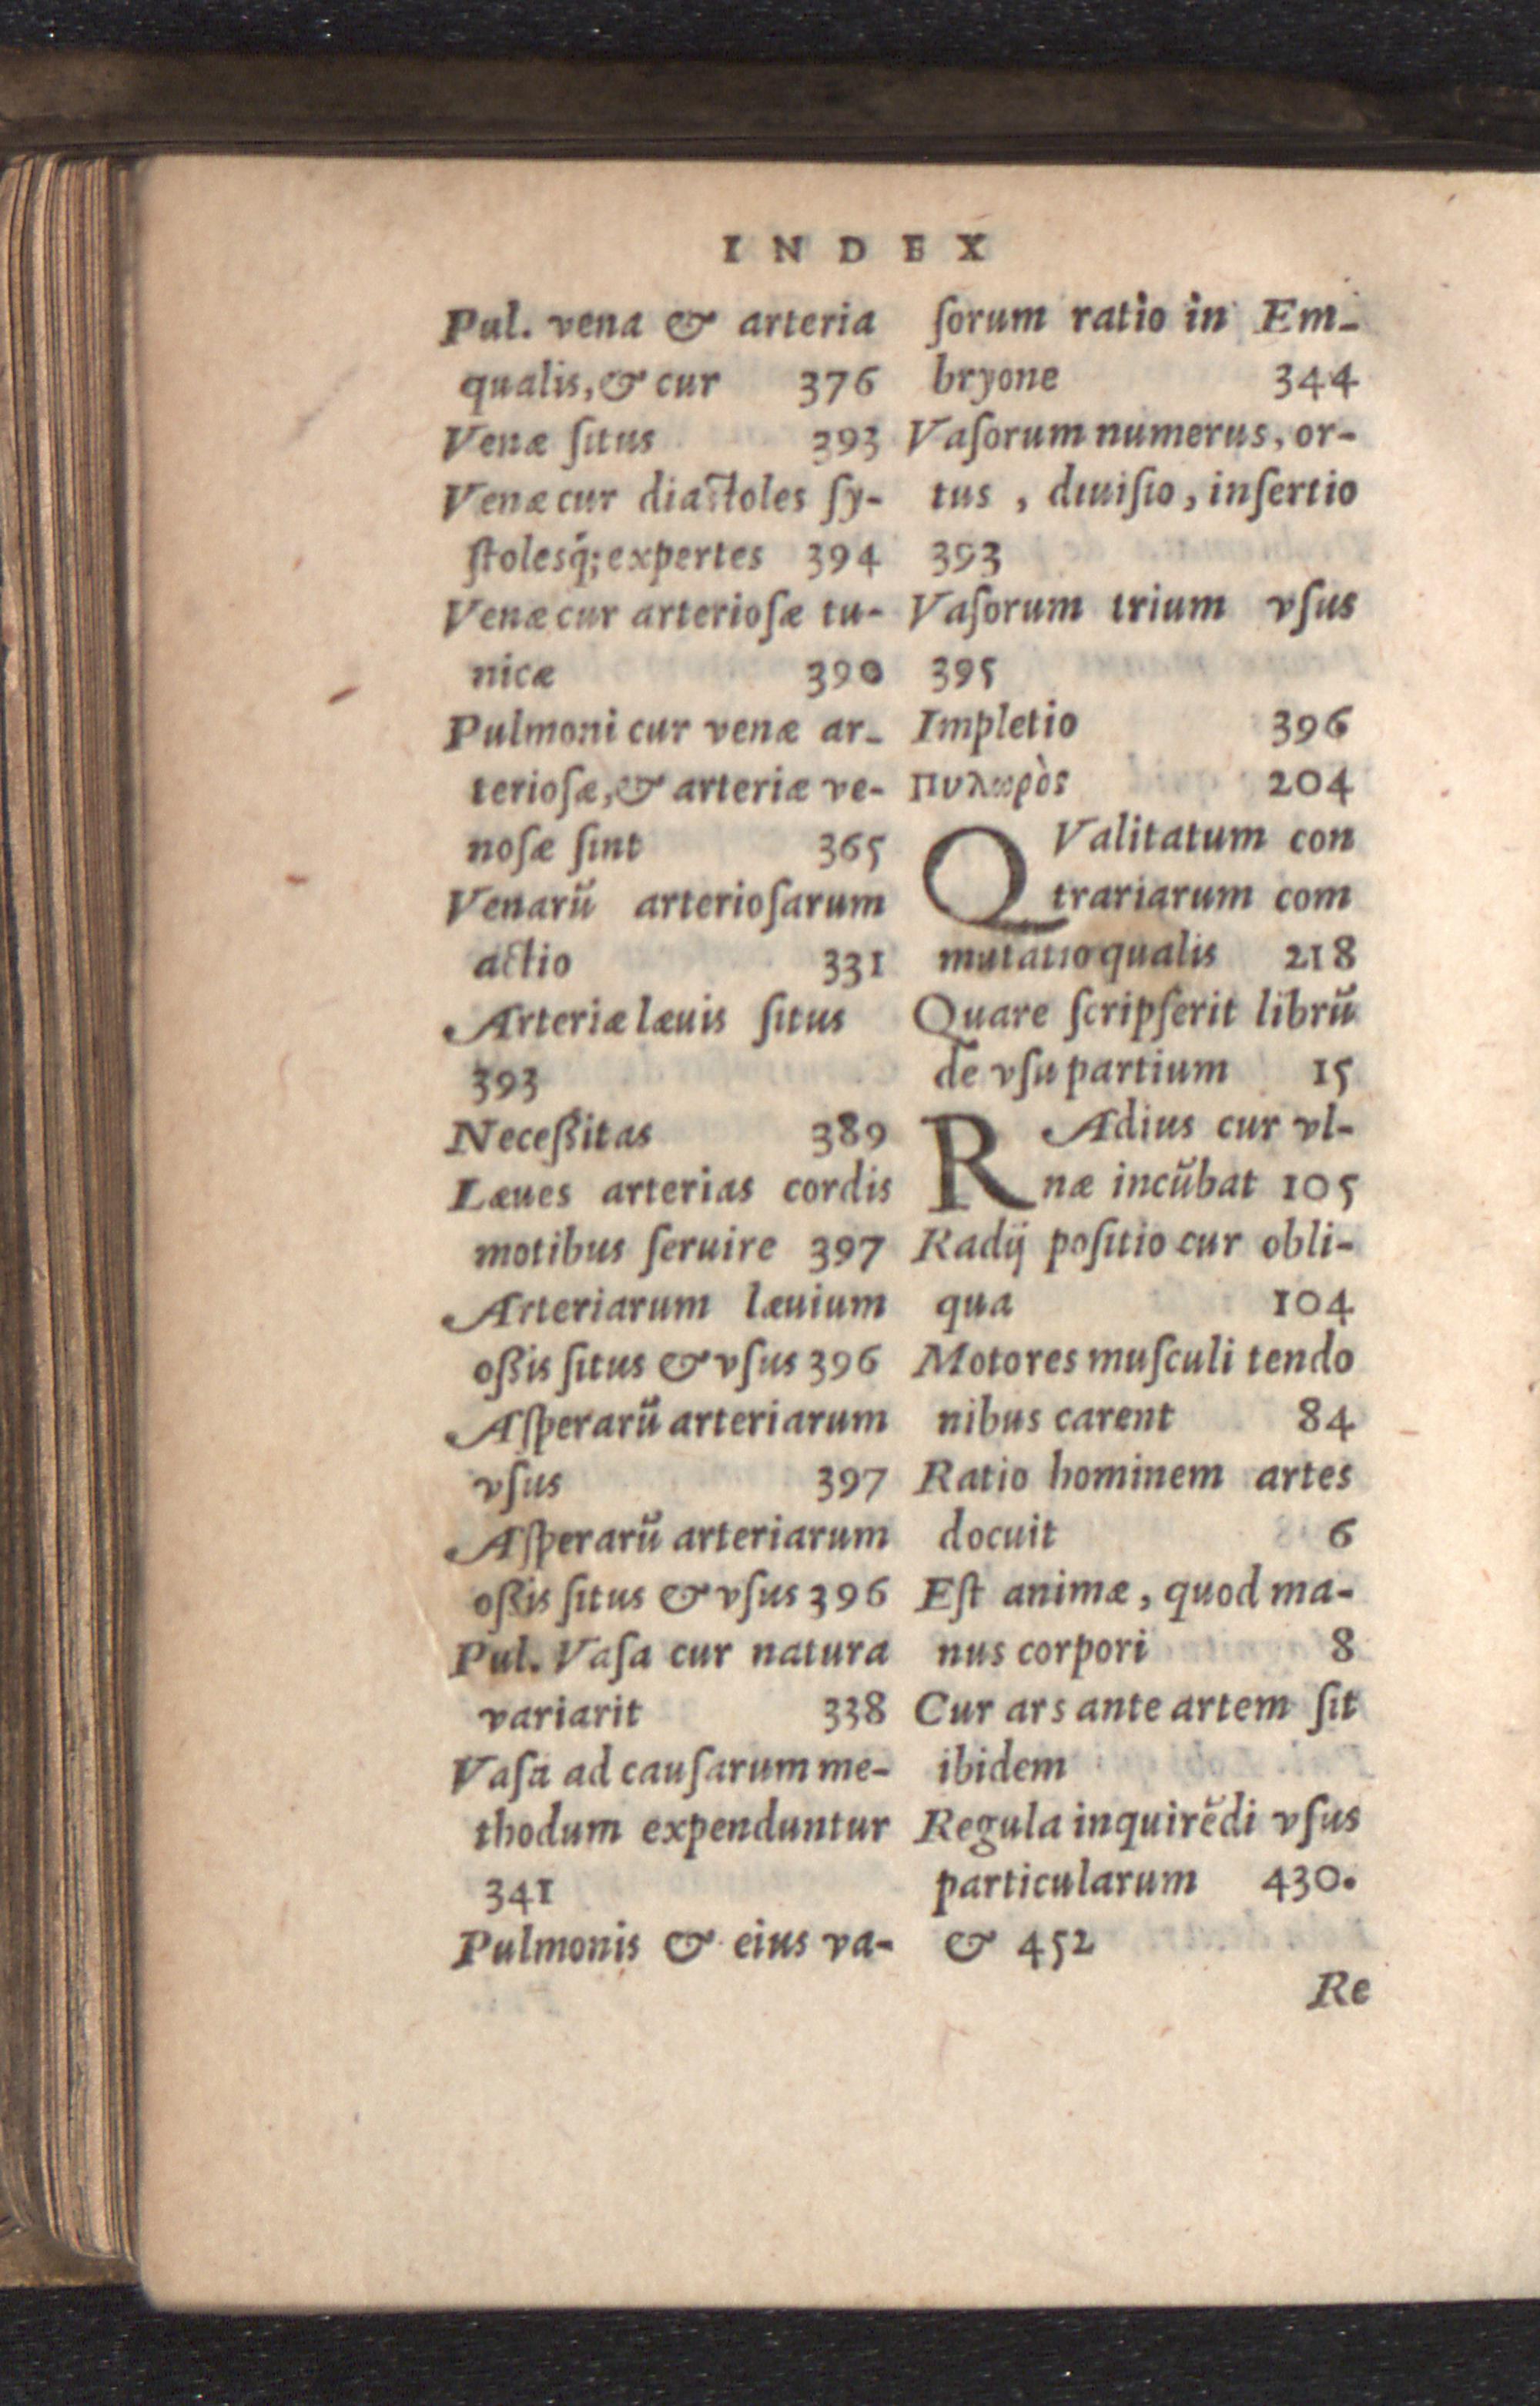 INDEX
Pul. vena & arteria
qualis, & cur 376
Venæ ſitus 393
Venæ cur diaſtoles ſy-
ſtolesq́; expertes 394
Venæ cur arterioſæ tu-
nicæ 390
Pulmoni cur venæ ar-
terioſæ, & arteriæ ve-
noſæ ſint 365
Venarũ arterioſarum
actio 331
Arteriæ læuis ſitus
393
Neceßitas 389
Læues arterias cordis
motibus ſeruire 397
Arteriarum læuium
oßis ſitus & vſus 396
Aſperarũ arteriarum
vſus 397
Aſperarũ arteriarum
oßis ſitus & vſus 396
Pul. Vaſa cur natura
variarit 338
Vaſa ad cauſarum me-
thodum expenduntur
341
Pulmonis & eius va-
ſorum ratio in Em-
bryone 344
Vaſorum numerus, or-
tus, diuiſio, inſertio
393
Vaſorum trium vſus
395
Impletio 396
Πυλωρὸς 204
QValitatum con
trariarum com
mutatio qualis 218
Quare ſcripſerit librũ
de vſu partium 15
RAdius cur vl-
næ incũbat 105
Radij poſitio cur obli-
qua 104
Motores muſculi tendo
nibus carent 84
Ratio hominem artes
docuit 6
Eſt animæ, quod ma-
nus corpori 8
Cur ars ante artem ſit
ibidem
Regula inquirẽdi vſus
particularum 430.
& 452
Re